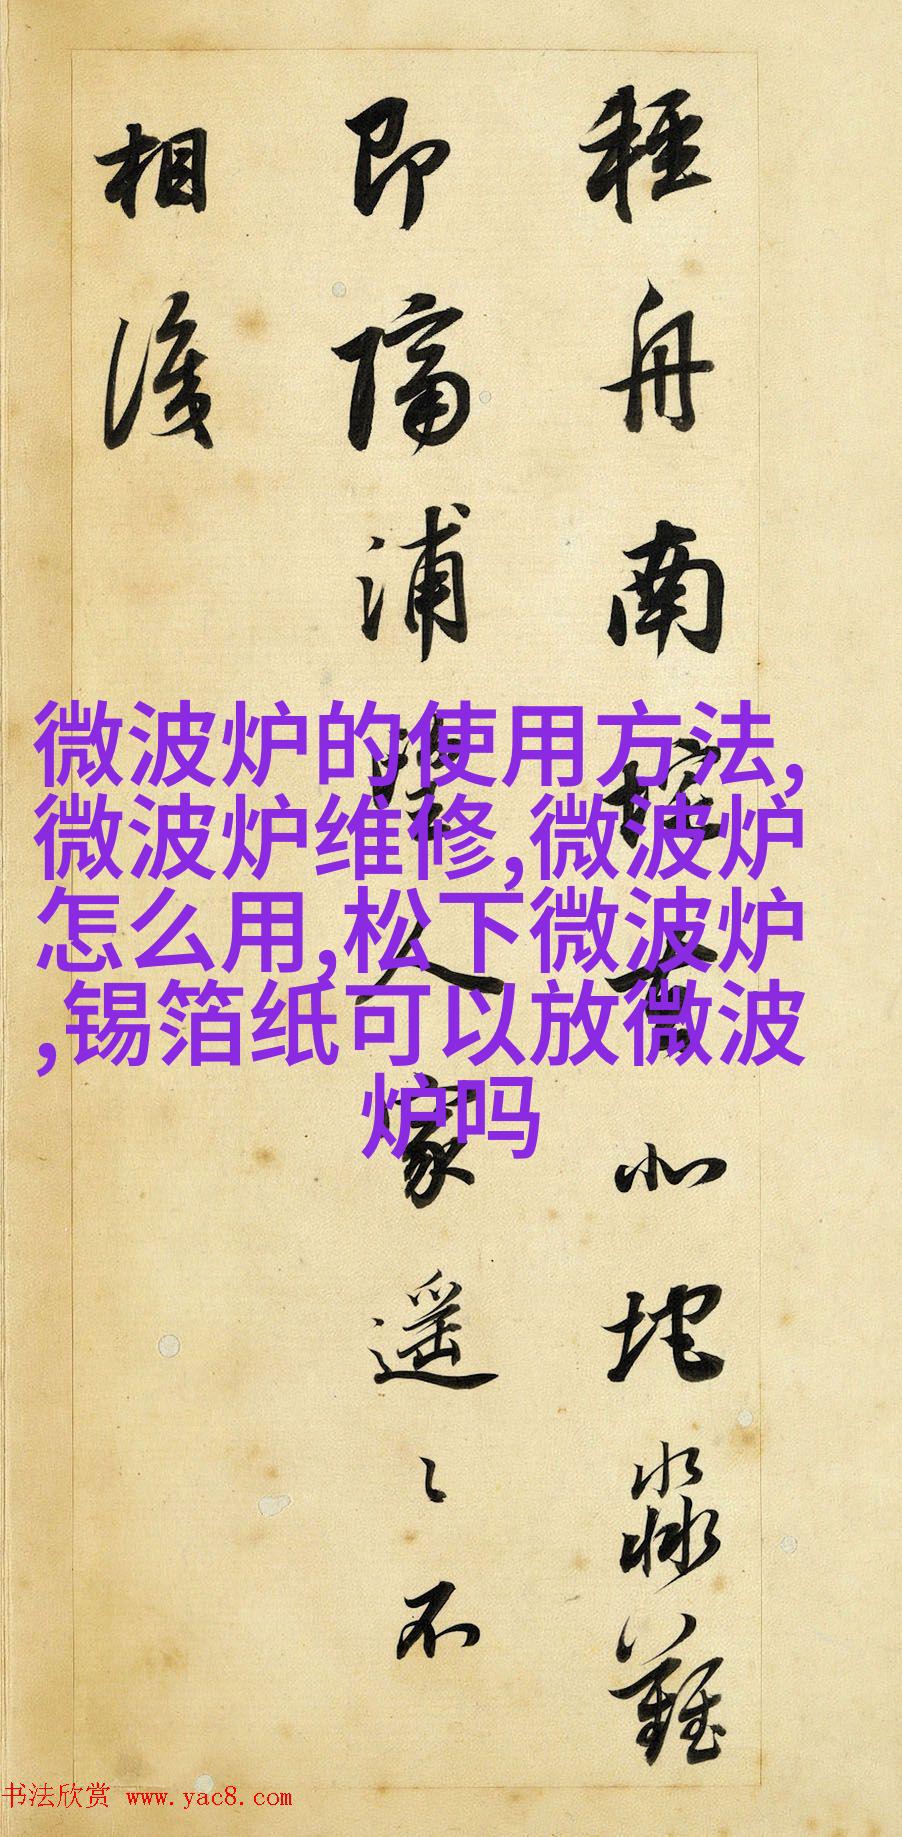 輕舟南垞去北垞淼難
即隔浦望人家遥々不
相識
微波炉的使用方法,
微波炉维修,微波炉
怎么用,松下微波炉
,锡箔纸可以放微波
炉吗
书法欣赏 www.yac8.com